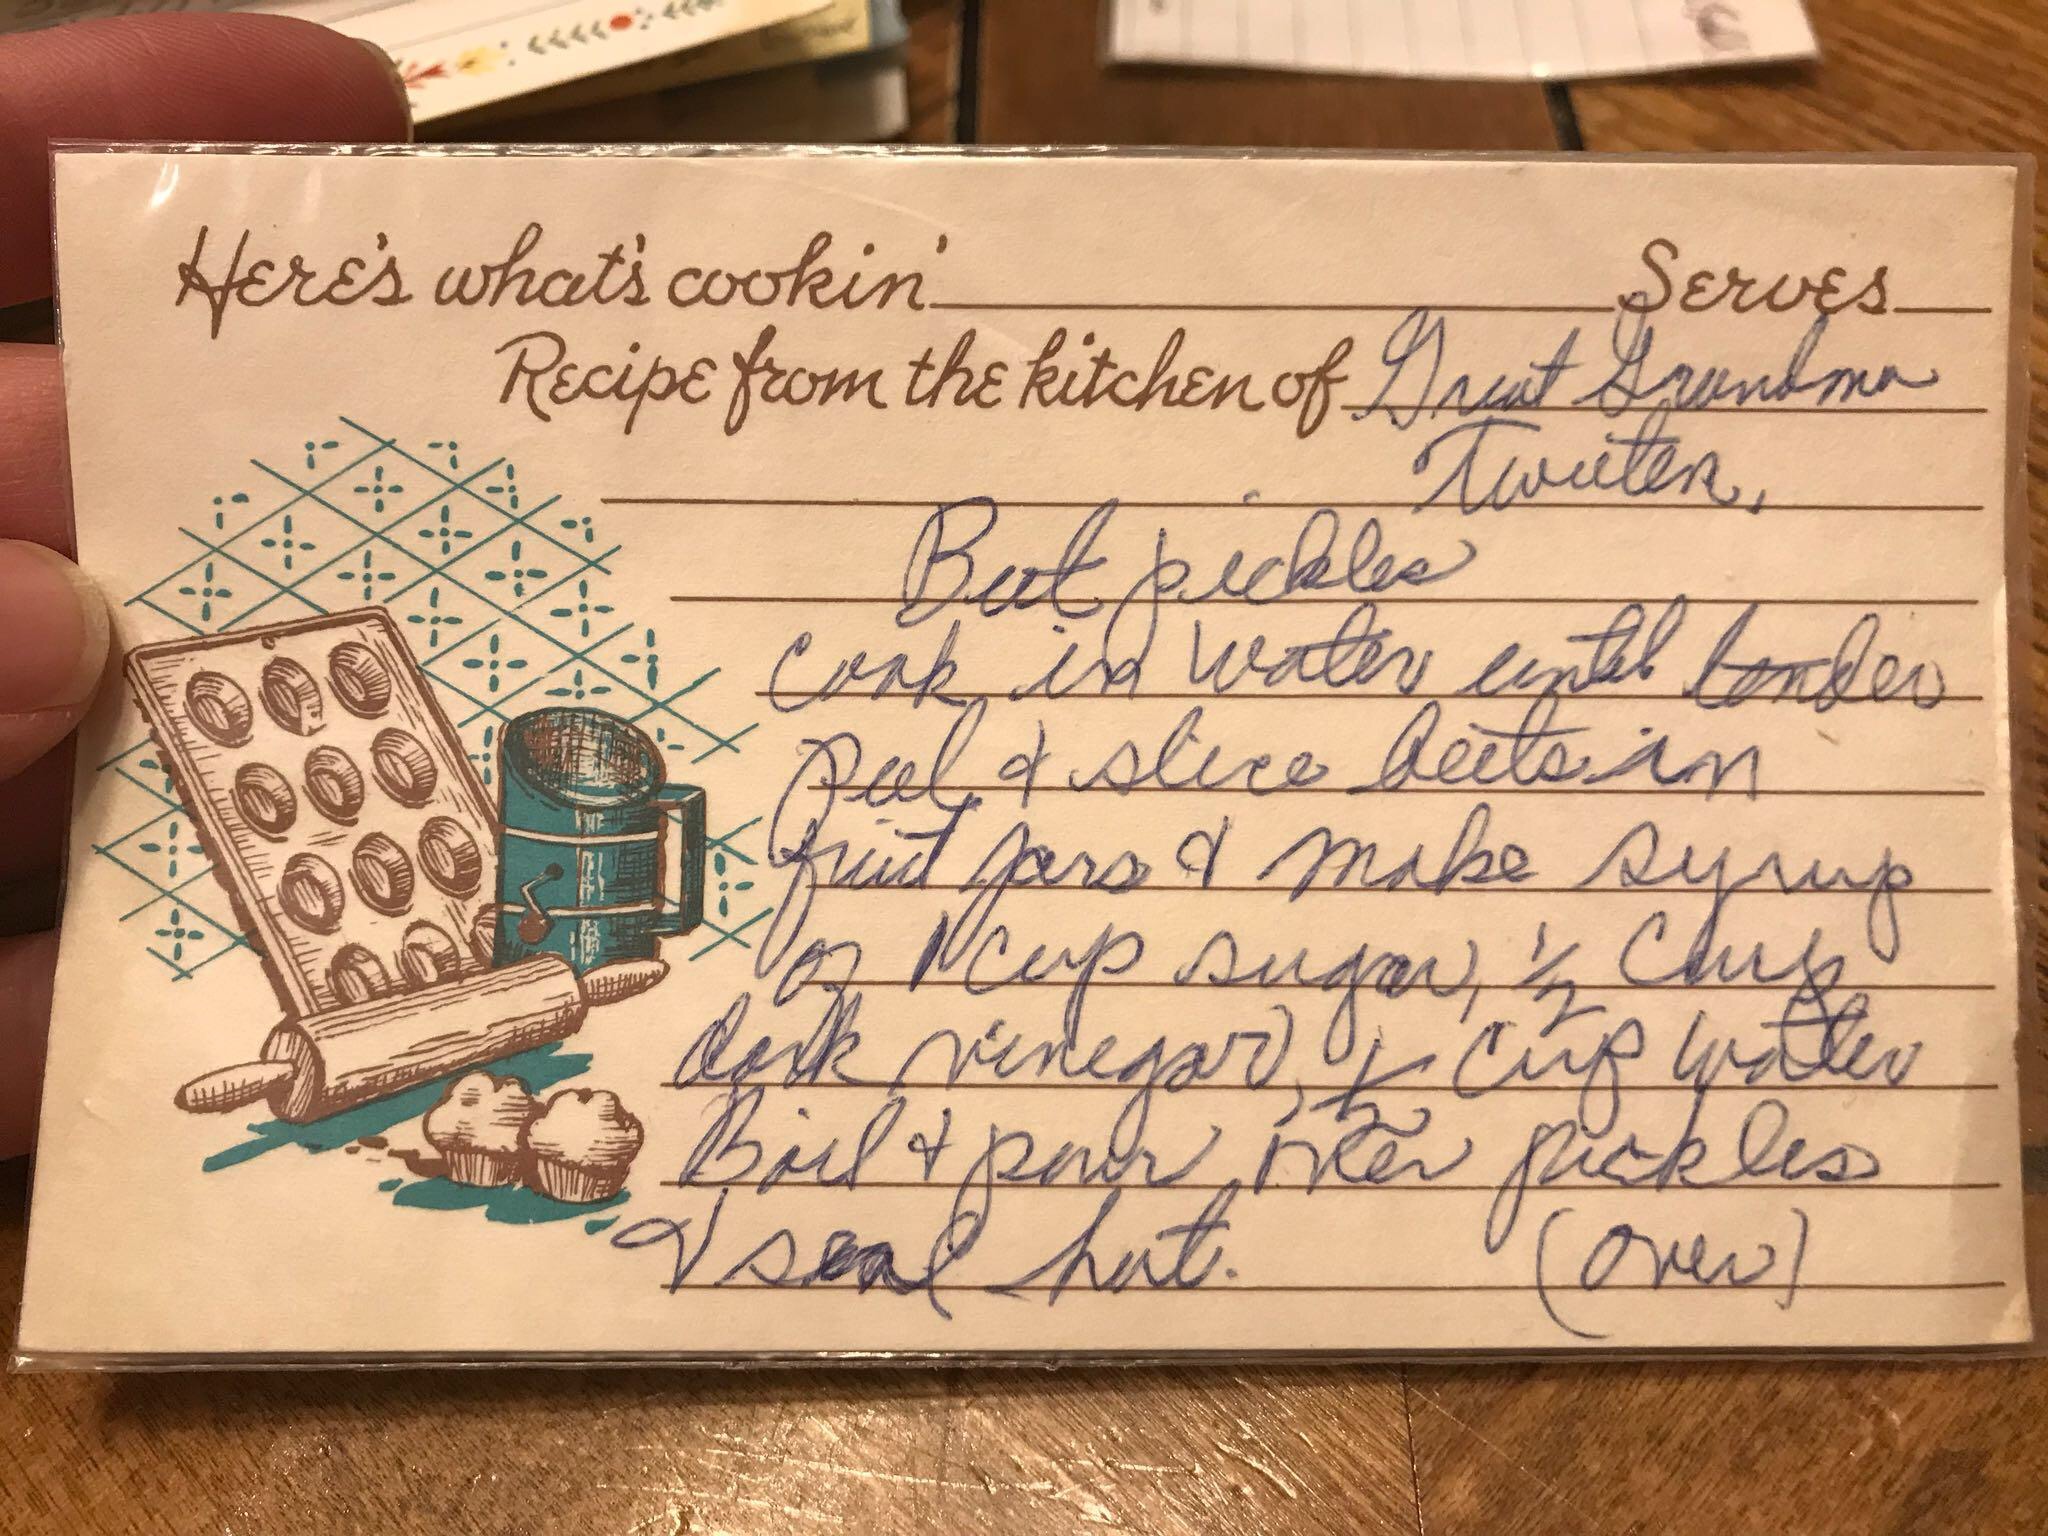 Here's what's cookin' Serves
Recipe from the kitchen of Great Grandma
Tweiten,
Beet pickles
cook in water until tender
peel & slice beets in
fruit jars & make syrup
of 1 cup sugar, 1/2 cup
dark vinegar, 1/2 cup water
Boil & pour over pickles
& seal hot. (over)